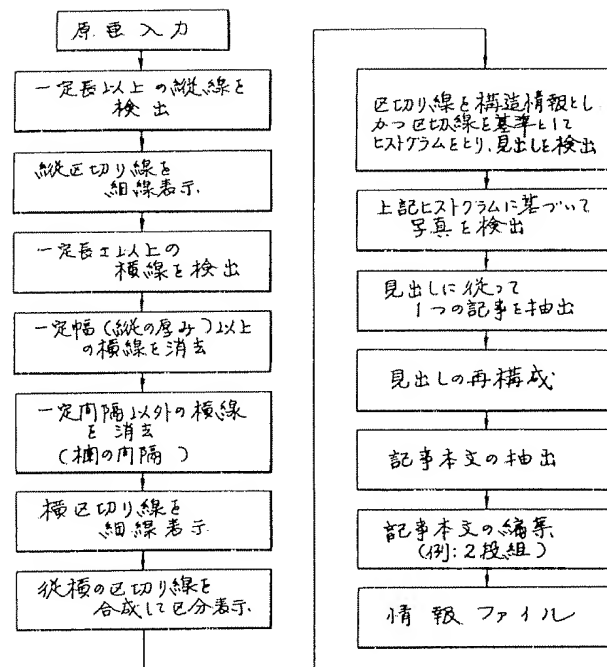 原画入力
一定長以上の縦線を
検出
縦区切り線を
細線表示
一定長さ以上の
横線を検出
一定幅(縦の厚み)以上
の横線を消去
一定間隔以外の横線
を消去
(欄の間隔)
横区切り線を
細線表示
従横の区切り線を
合成して区分表示
区切り線を構造情報とし
かつ区切線を基準として
ヒストグラムをとり、見出しを検出
上記ヒストグラムに基づいて
写真を検出
見出しに従って
1つの記事を抽出
見出しの再構成
記事本文の抽出
記事本文の編集
(例:2段組)
情報ファイル